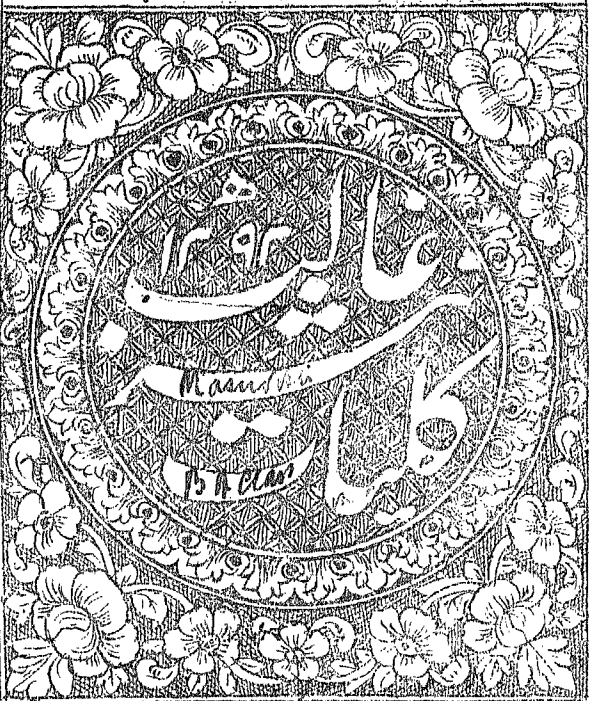 کلیات نثر غالب
۱۲۹۲ھ
B A Class